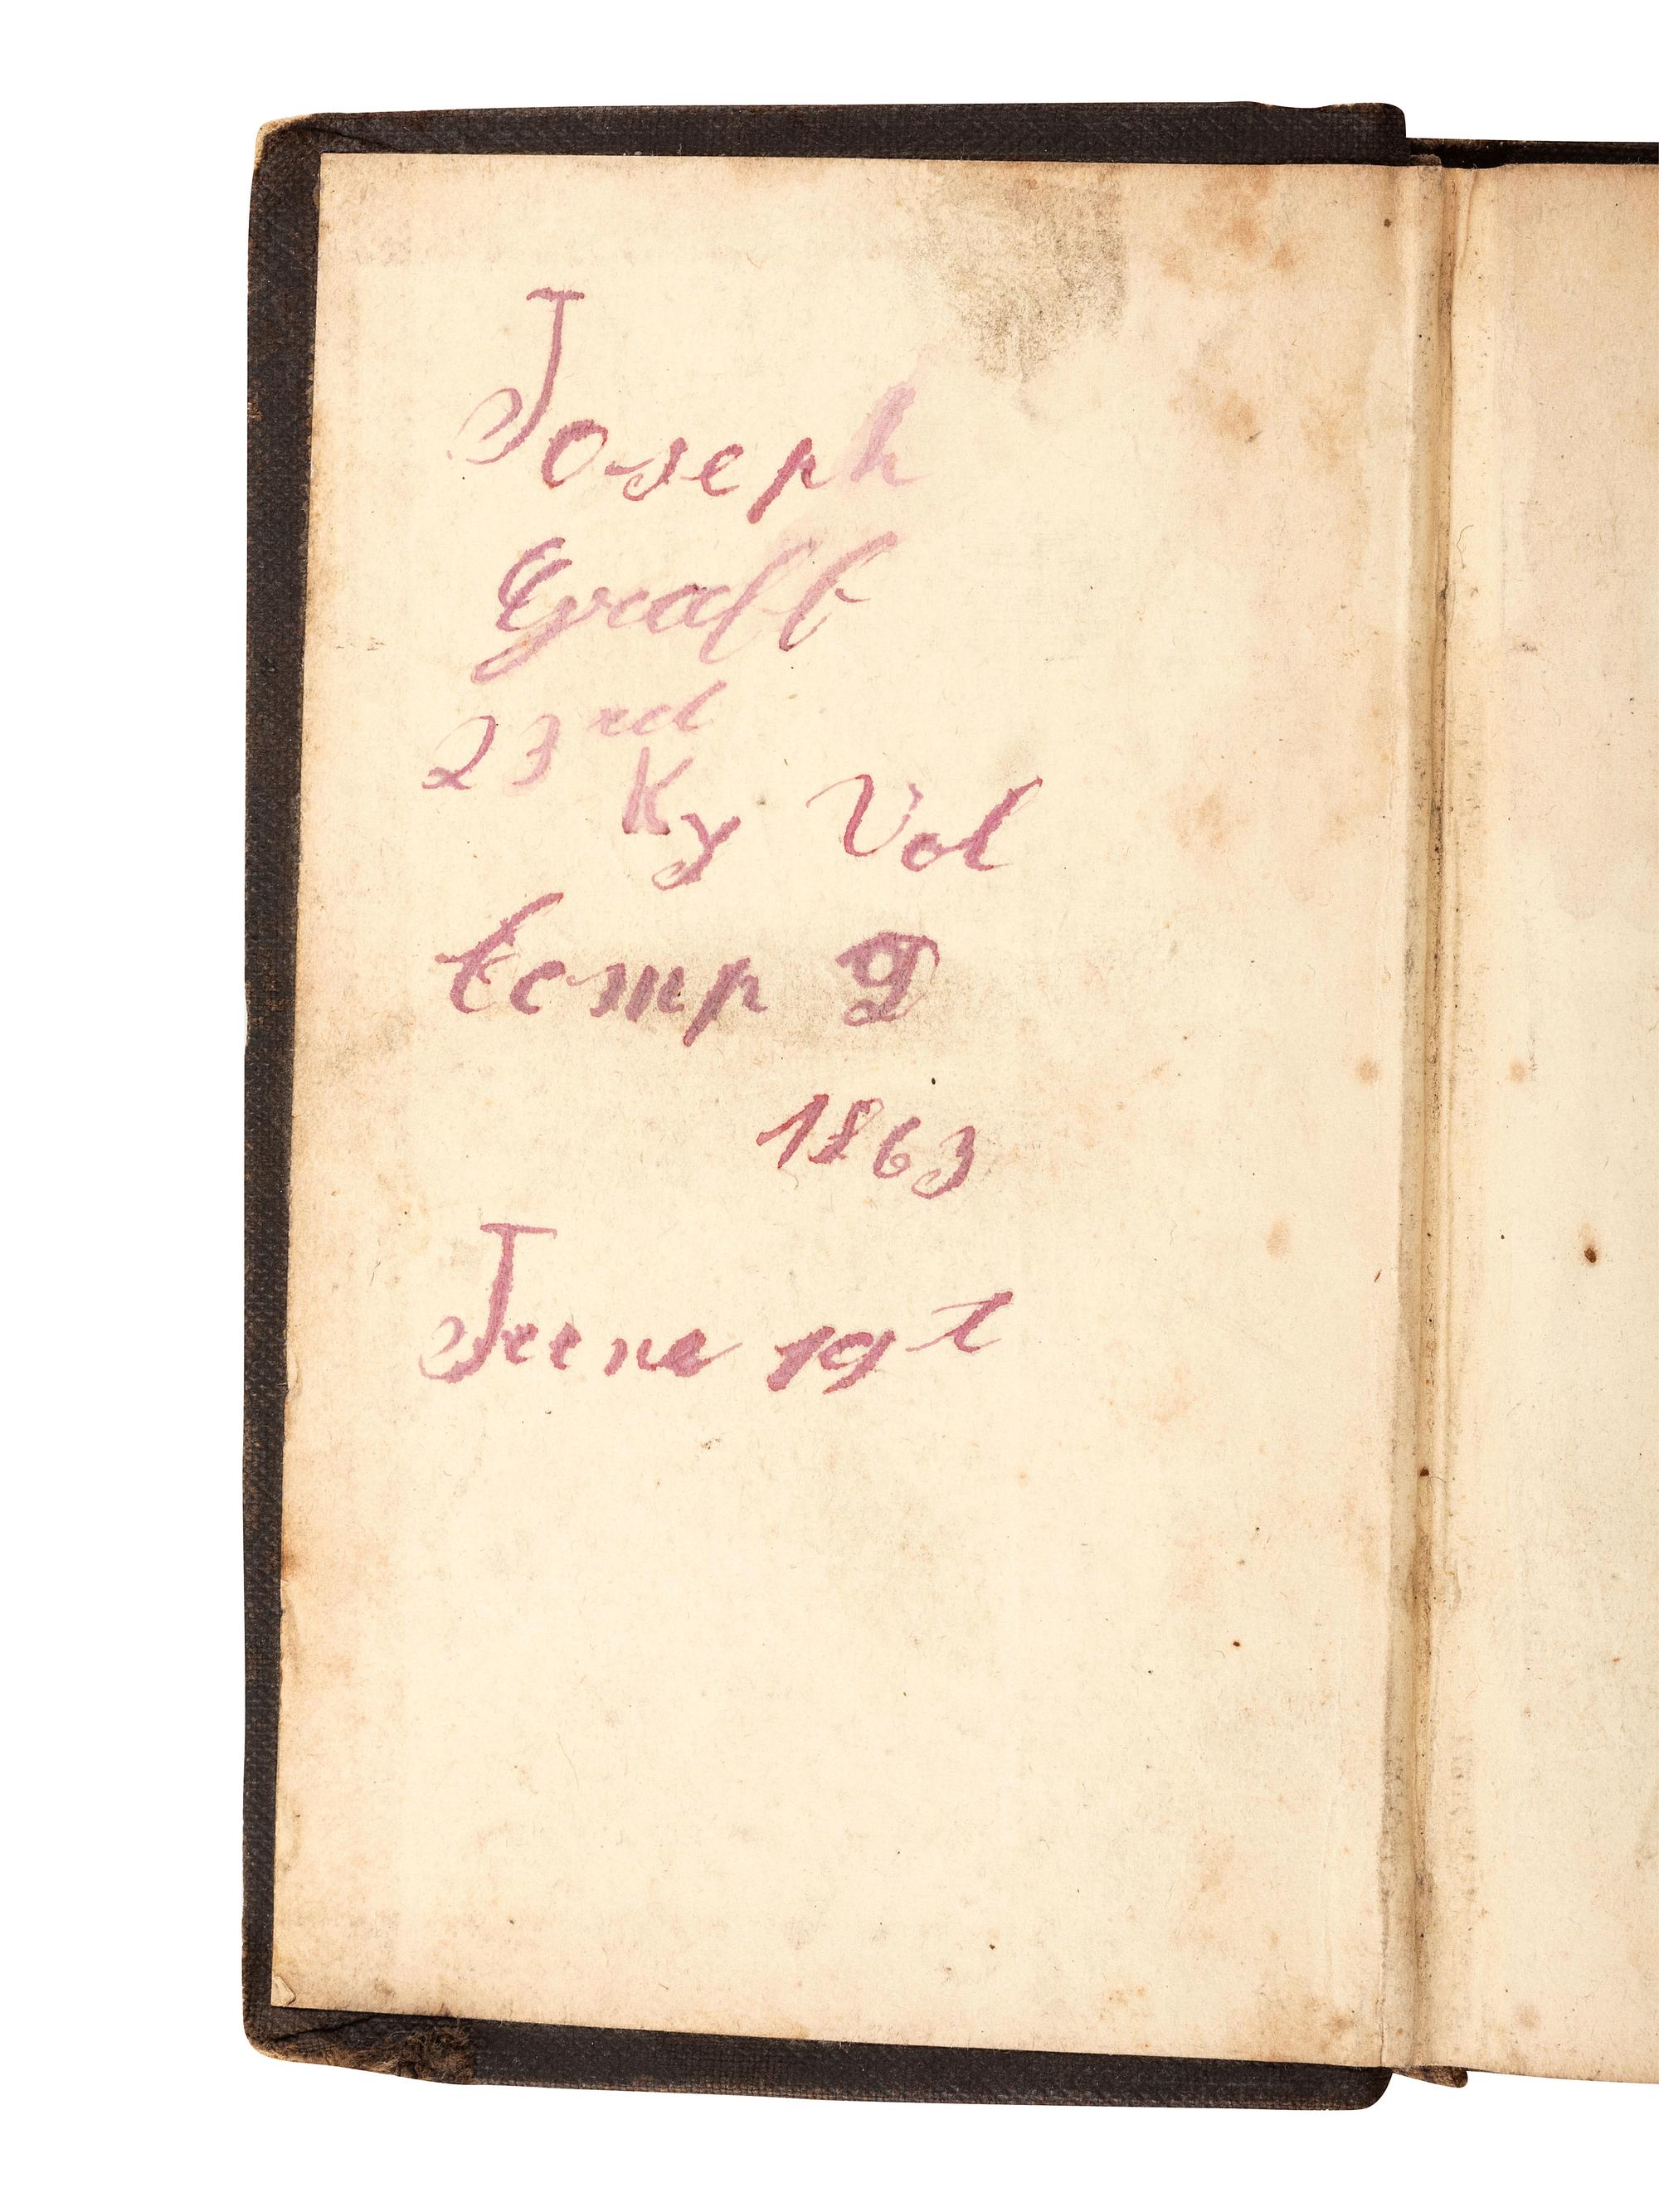 Joseph
Graff
23rd
Ky Vol
Comp g
1863
June 19t